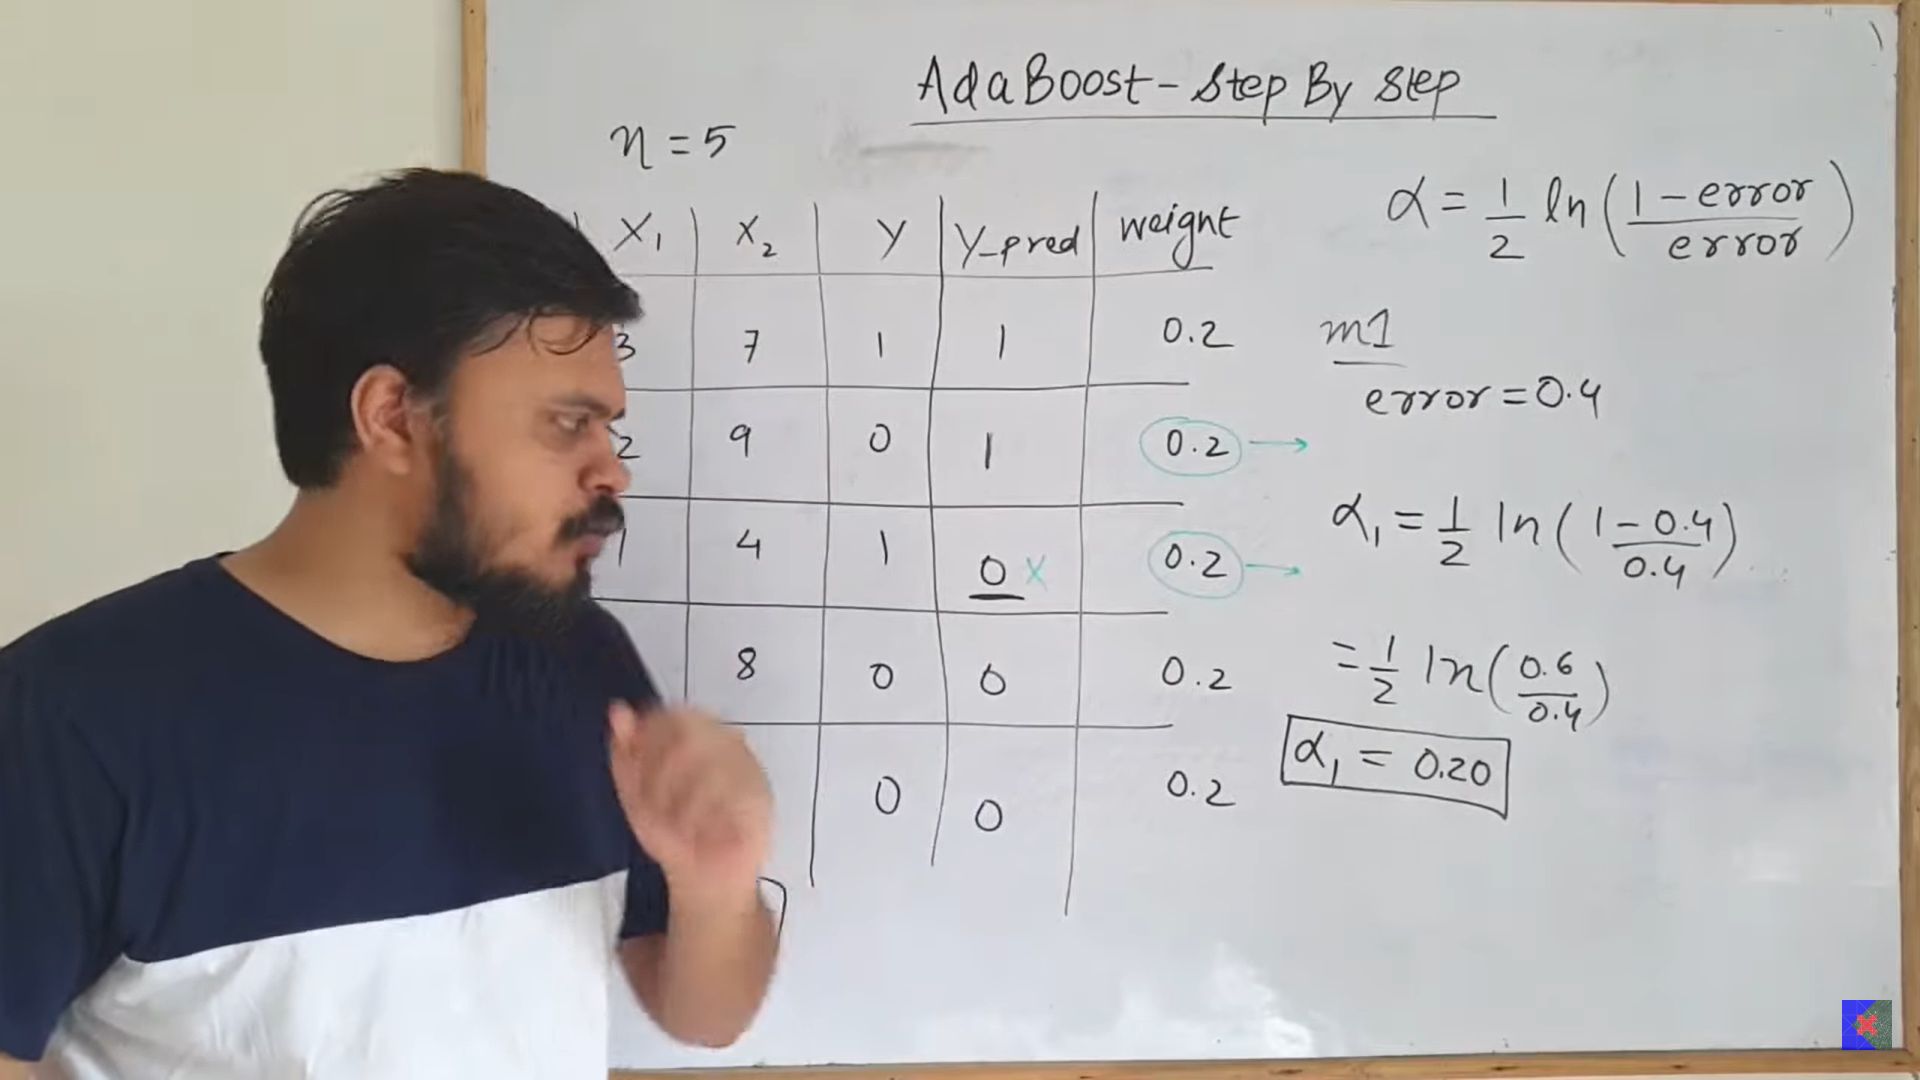 AdaBoost - Step By Step
n = 5
X1 X2 Y Y-pred weight
3 7 1 1 0.2
2 9 0 1 0.2 →
1 4 1 0 x 0.2 →
8 0 0 0.2
0 0 0.2
α = 1/2 ln (1 - error / error)
m1
error = 0.4
α1 = 1/2 ln (1 - 0.4 / 0.4)
= 1/2 ln (0.6 / 0.4)
α1 = 0.20